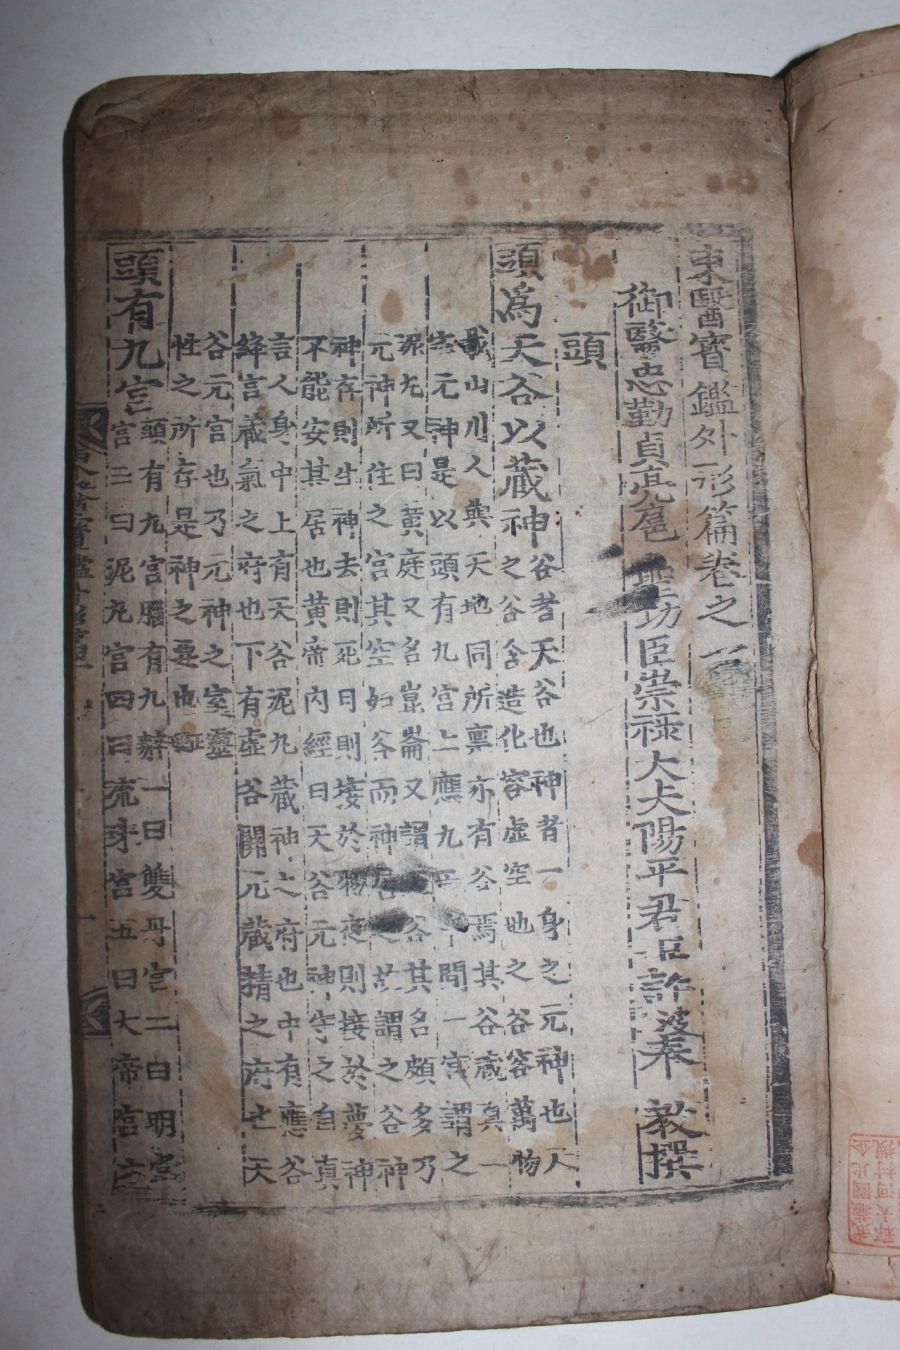 東醫寶鑑外形篇卷之一
御醫忠勤貞亮扈聖功臣崇祿大夫陽平君臣許浚奉 敎撰
頭
頭爲天谷以藏神
谷者天谷也神者一身之元神也人
之谷含造化容虛空地之谷容萬物
載山川人與天地同所稟亦有谷焉其谷藏眞一
宅元神是以頭有九宮上應九 問一宮謂之
泥丸又曰黃庭又名崑崙又謂 谷其名頗多乃
元神所住之宮其空如谷而神居之故謂之谷神
神存則生神去則死日則接於物夜則接於夢神
不能安其居也黃帝內經曰天谷元神守之自眞
言人身中上有天谷泥丸藏神之府也中有應谷
絳宮藏氣之府也下有虛谷關元藏精之府也天
谷元宮也乃元神之室靈
性之所存是神之要也
頭有九宮
頭有九宮腦有九瓣一曰雙丹宮二曰明堂
宮三曰泥丸宮四曰流珠宮五曰大帝宮六